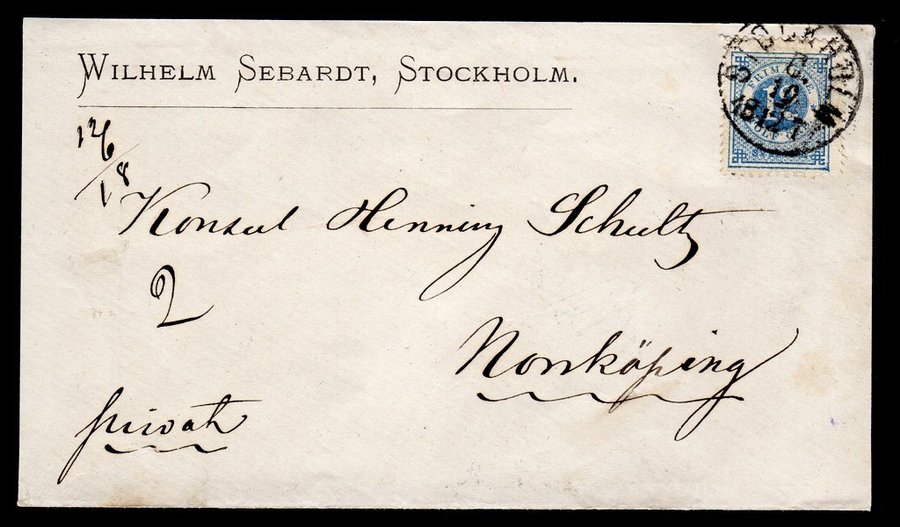 WILHELM SEBARDT, STOCKHOLM.
STOCKHOLM
C.
19
FRIM
126/18
Konsul Henning Schultz
2
Norrköping
privat